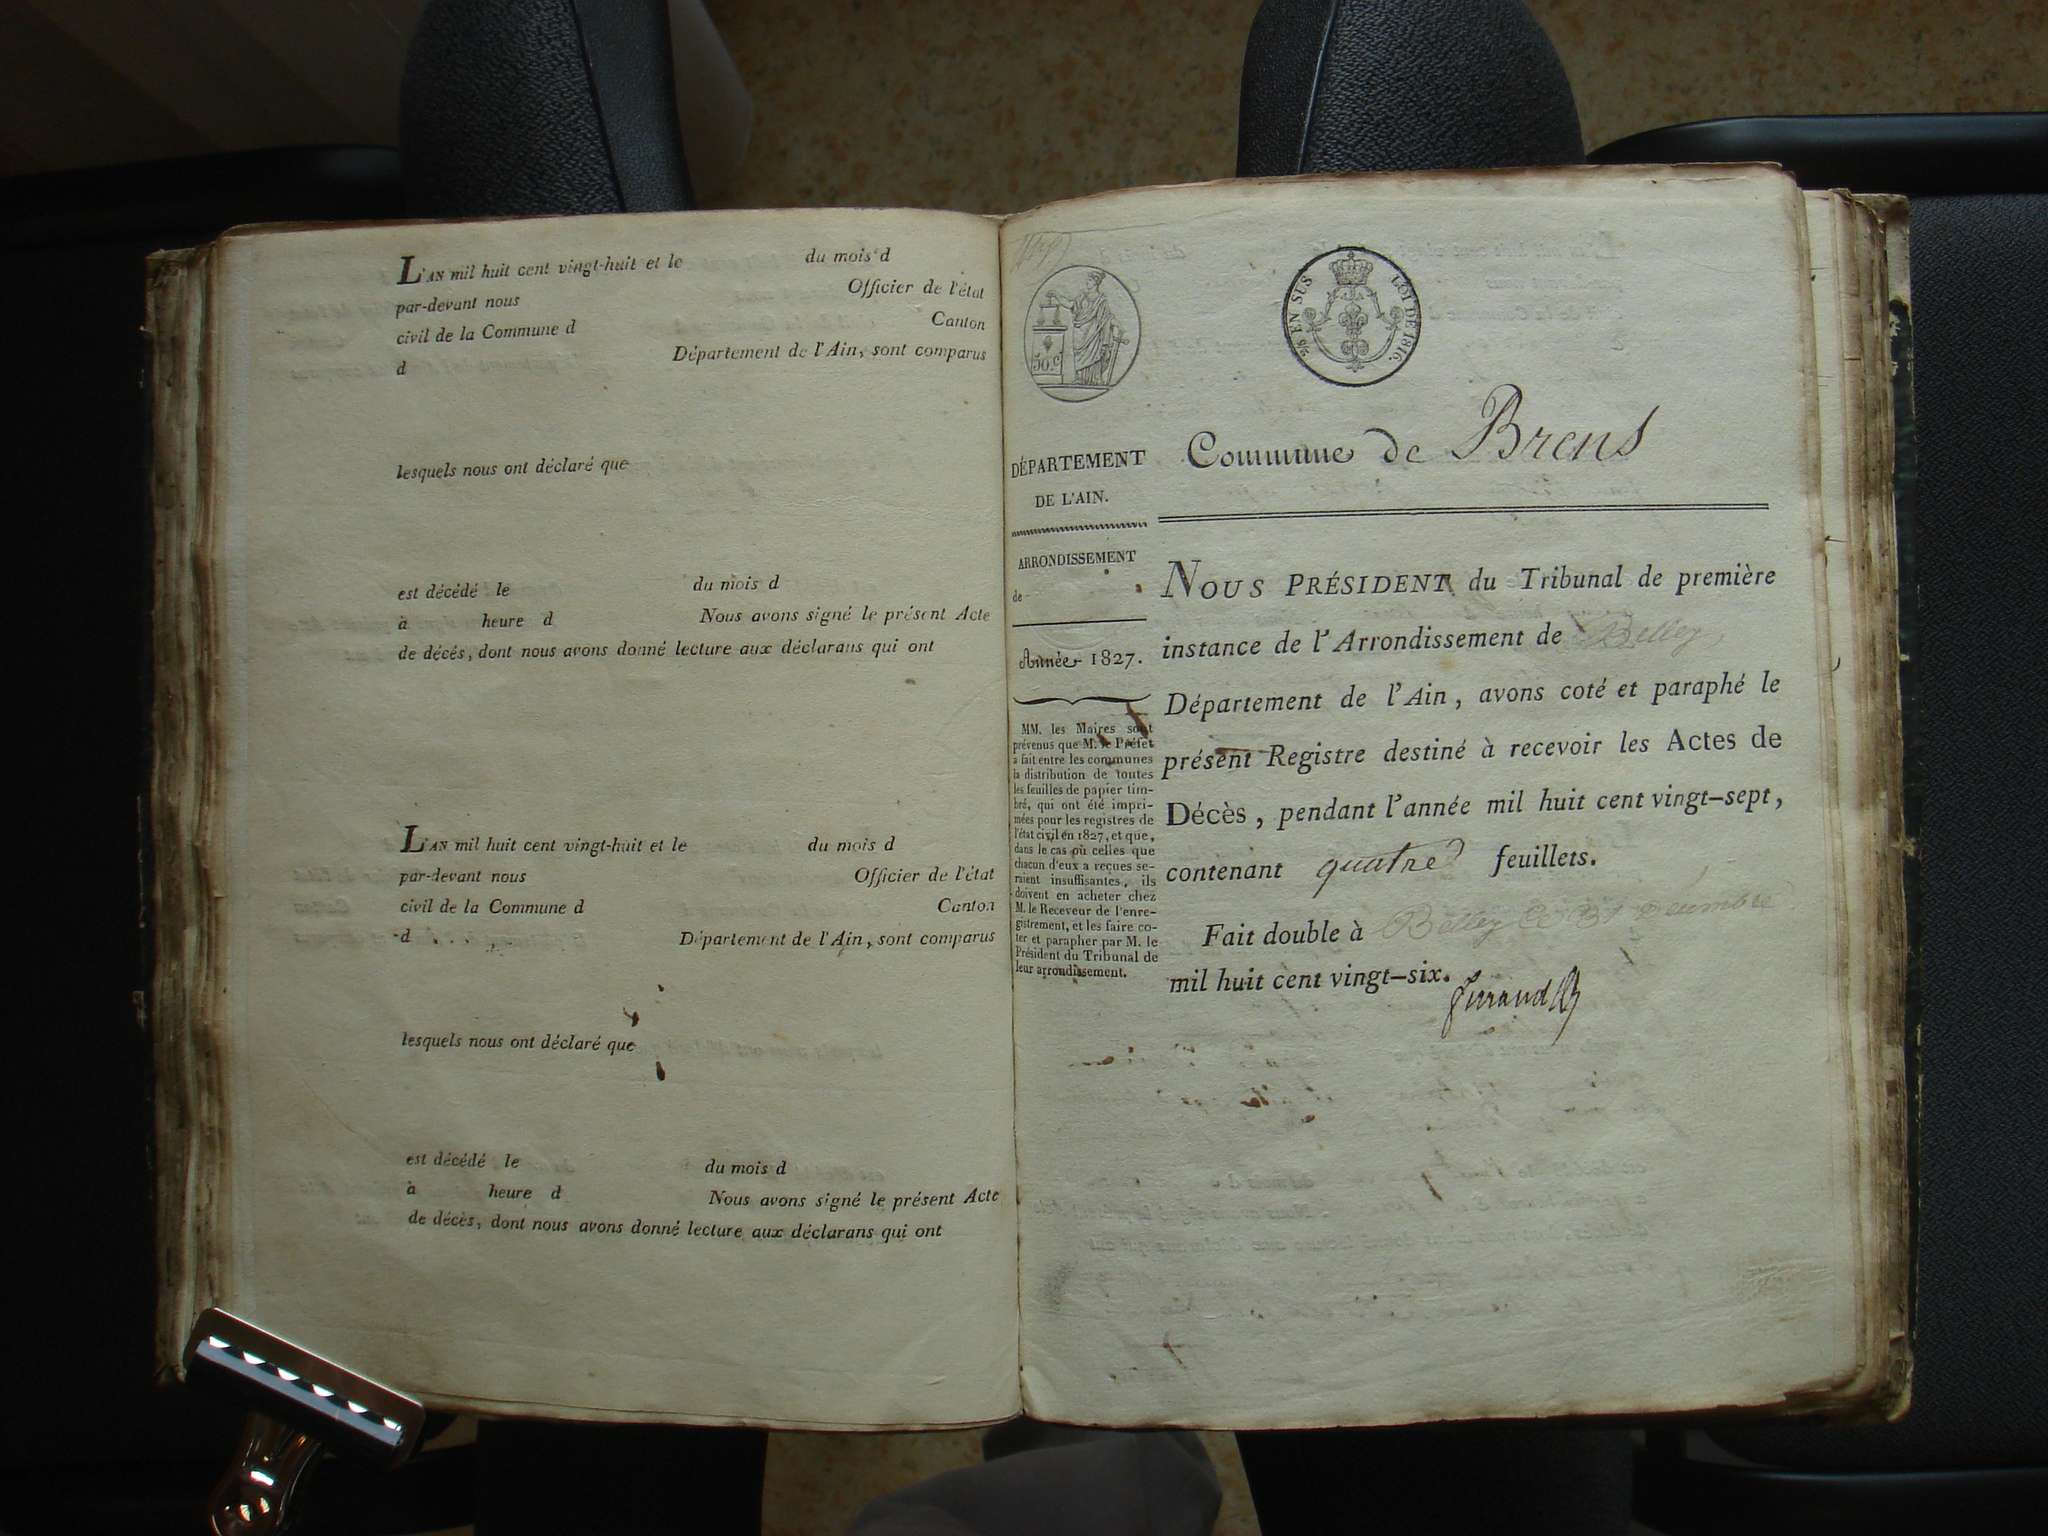 L'AN mil huit cent vingt-huit et le du mois d
par-devant nous Officier de l'état
civil de la Commune d Canton
d Département de l'Ain, sont comparus
lesquels nous ont déclaré que
est décédé le du mois d
à heure d Nous avons signé le présent Acte
de décès, dont nous avons donné lecture aux déclarans qui ont
L'AN mil huit cent vingt-huit et le du mois d
par-devant nous Officier de l'état
civil de la Commune d Canton
d Département de l'Ain, sont comparus
lesquels nous ont déclaré que
est décédé le du mois d
à heure d Nous avons signé le présent Acte
de décès, dont nous avons donné lecture aux déclarans qui ont
50.c
EN SUS LOI DE 1816.
DÉPARTEMENT
DE L'AIN.
ARRONDISSEMENT
de
Année 1827.
MM. les Maires sont
prévenus que M. le Préfet
a fait entre les communes
la distribution de toutes
les feuilles de papier tim-
bré, qui ont été impri-
mées pour les registres de
l'état civil en 1827, et que,
dans le cas où celles que
chacun d'eux a reçues se-
raient insuffisantes, ils
doivent en acheter chez
M. le Receveur de l'enre-
gistrement, et les faire co-
ter et parapher par M. le
Président du Tribunal de
leur arrondissement.
Commune de Brens
NOUS PRÉSIDENT du Tribunal de première
instance de l'Arrondissement de Belley
Département de l'Ain, avons coté et paraphé le
présent Registre destiné à recevoir les Actes de
Décès, pendant l'année mil huit cent vingt-sept,
contenant quatre feuillets.
Fait double à Belley le 31 décembre
mil huit cent vingt-six.